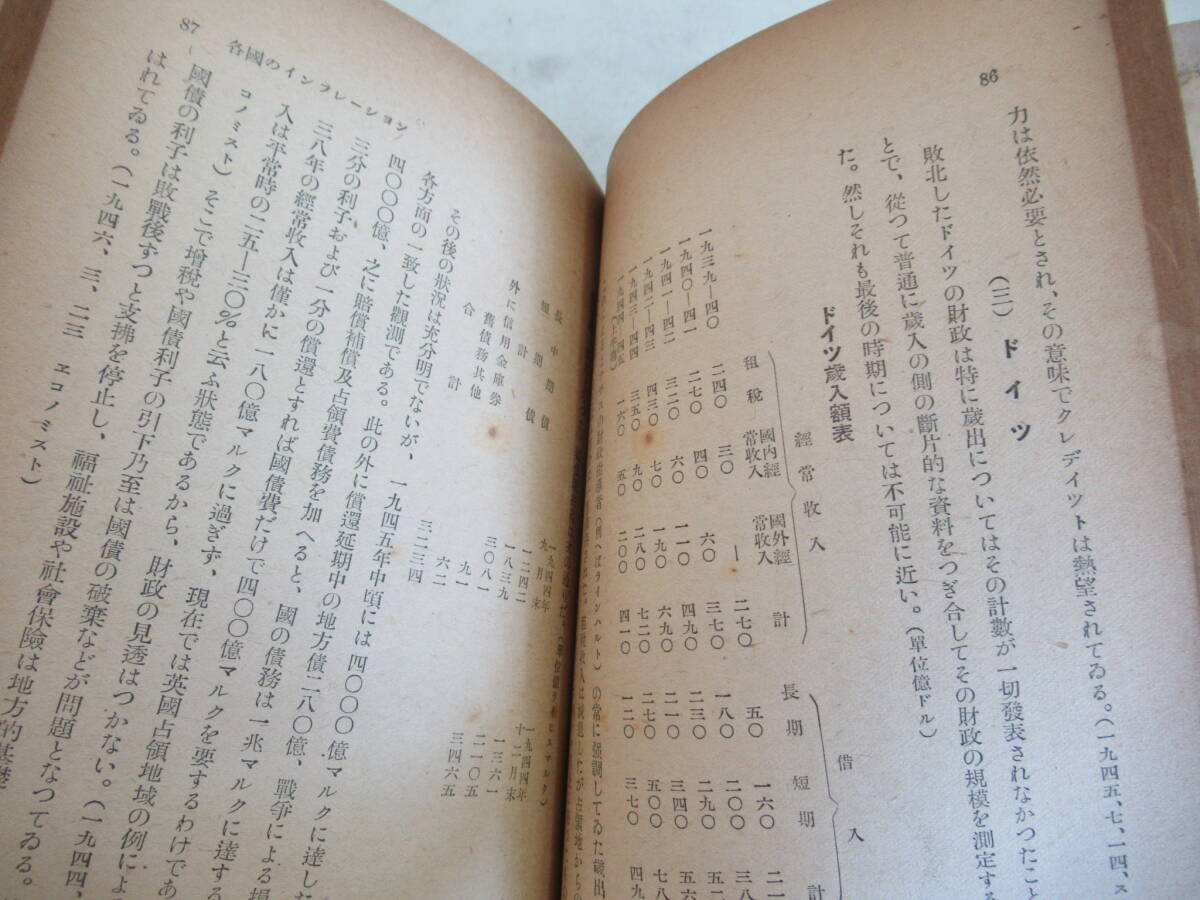 86
力は依然必要とされ、その意味でクレデイツトは熱望されてゐる。(一九四五、七、一四、ス
(三) ドイツ
敗北したドイツの財政は特に歳出についてはその計數が一切發表されなかつたこと
とで、從つて普通に歳入の側の斷片的な資料をつぎ合してその財政の規模を測定する
た。然しそれも最後の時期については不可能に近い。(單位億ドル)
ドイツ歳入額表
經常收入 借入
租税 國内經常收入 國外經常收入 計 長期 短期 計
一九三九—四〇 二四〇 三〇 — 二七〇 五〇 一六〇 二一
一九四〇—四一 二七〇 四〇 六〇 三七〇 一八〇 二〇〇 三八
一九四一—四二 三二〇 六〇 一一〇 四九〇 二三〇 二九〇 五二
一九四二—四三 四三〇 七〇 一九〇 六九〇 二一〇 三四〇 五六
一九四三—四四 三五〇 九〇 二八〇 七二〇 二七〇 五〇〇 七八
一九四四—四五(上半期) 一六〇 五〇 二〇〇 四一〇 一二〇 三七〇 四九
の財政指導者(例へばラインハルト)の常に強調してゐた歳出
87
各國のインフレーション
一九四四年九月末 一九四四年十二月末
長中期債 一二四二 一三六一
短期債 一八三九 二一〇五
計 三〇八一 三四六五
外に信用金庫券 九一
舊債務其他 六二
合計 三二三四
その後の狀況は充分明でないが、一九四五年中頃には四〇〇〇億マルクに達した
各方面の一致した觀測である。此の外に償還延期中の地方債二八〇億、戰爭による損
四〇〇〇億、之に賠償補償及占領費債務を加へると、國の債務は一兆マルクに達する
三分の利子および一分の償還とすれば國債費だけで四〇〇億マルクを要するわけであ
三八年の經常收入は僅かに一八〇億マルクに過ぎず、現在では英國占領地域の例によ
入は平常時の二五—三〇%と云ふ狀態であるから、財政の見透はつかない。(一九四四、
コノミスト) そこで增税や國債利子の引下乃至は國債の破棄などが問題となつてゐる。
國債の利子は敗戰後ずつと支拂を停止し、福祉施設や社會保險は地方的基礎
はれてゐる。(一九四六、三、二三 エコノミスト)